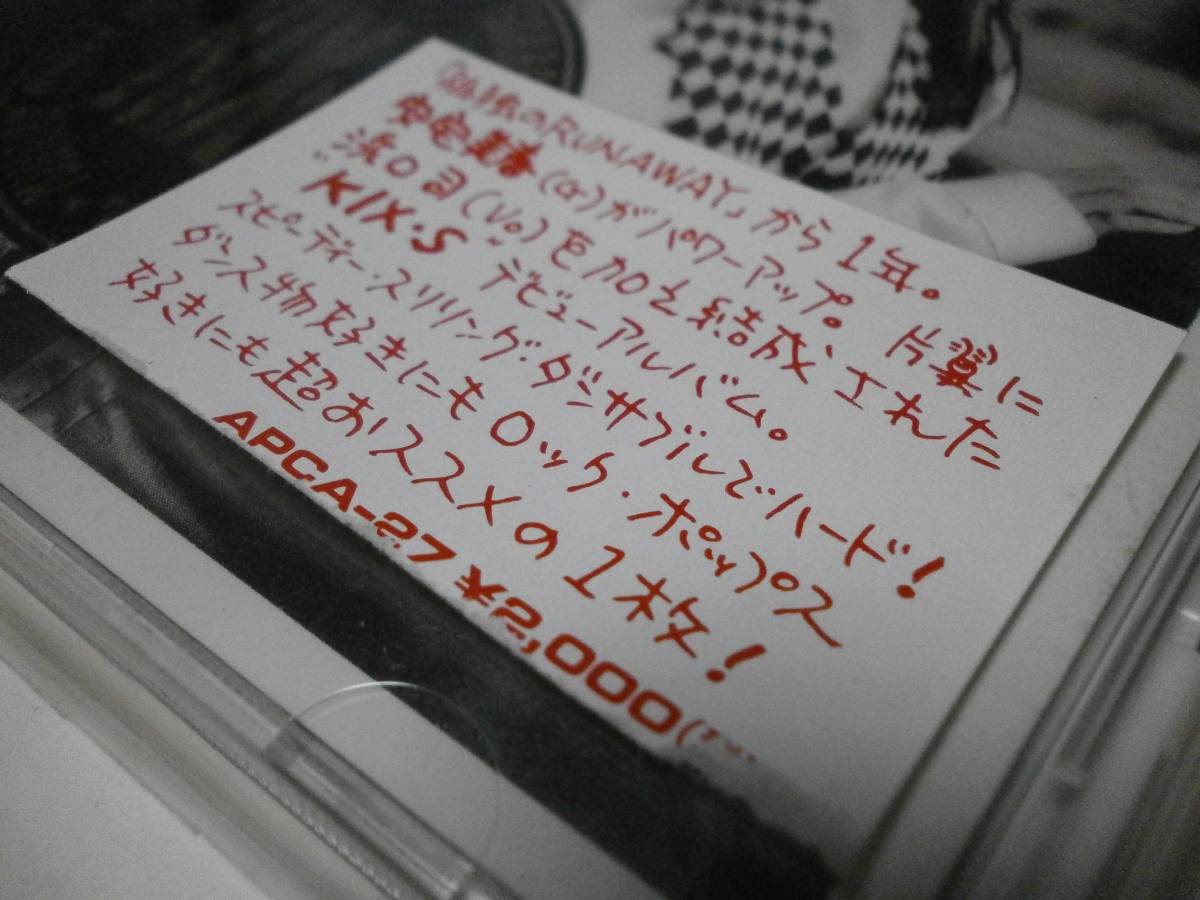 のRUNAWAY」から1年。
安宅美春(G)がパワーアップ。片翼に
浜口司(Vo)を加え結成された
KIX・S デビューアルバム。
スピーディー・スリリング・ダンサブルでハード!
ダンス物好きにもロック・ポップス
好きにも超おススメの1枚!
APCA-27 ¥2,000(